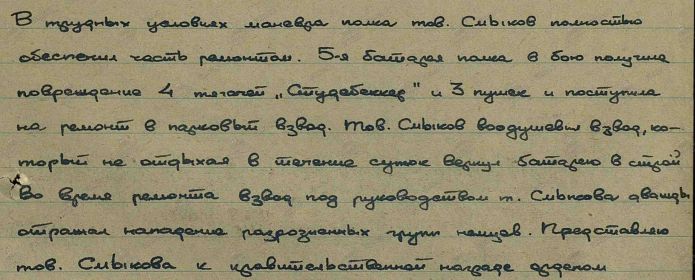 В трудных условиях маневра полка тов. Смыков полностью
обеспечил часть ремонтом. 5-я батарея полка в бою получила
повреждение 4 тягачей „Студебеккер" и 3 пушек и поступила
на ремонт в парковый взвод. Тов. Смыков воодушевил взвод, ко-
торый не отдыхая в течение суток вернул батарею в строй
Во время ремонта взвод под руководством т. Смыкова дважды
отражал нападение разрозненных групп немцев. Представляю
тов. Смыкова к правительственной награде орденом